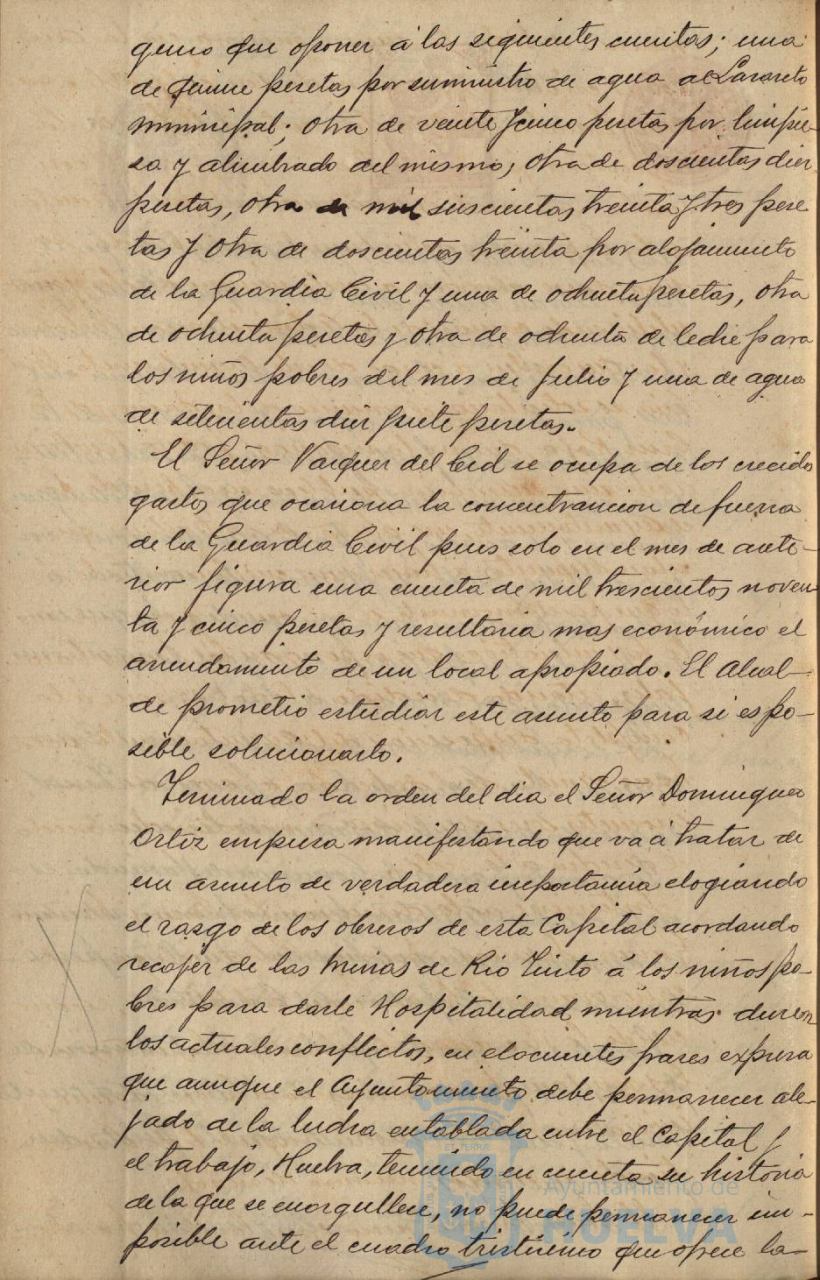 guno que oponer á las siguientes cuentas; una
de quince pesetas por suministro de agua al Lazareto
municipal; otra de veinte y cinco pesetas por limpie-
za y alumbrado del mismo; otra de doscientas diez
pesetas, otra de mil seiscientas treinta y tres pese
tas y otra de doscientas treinta por alojamiento
de la Guardia Civil y una de ochenta pesetas, otra
de ochenta pesetas y otra de ochenta de leche para
los niños pobres del mes de Julio y una de agua
de setecientas diez y siete pesetas.
El Señor Vazquez del Cid se ocupa de los crecidos
gastos que ocasiona la concentrancion de fuerza
de la Guardia Civil pues solo en el mes de ante-
rior figura una cuenta de mil trescientos noven
ta y cinco pesetas y resultaria mas económico el
arrendamiento de un local apropiado. El Alcal-
de prometio estudiar este asunto para si es po-
sible solucionarlo.
Terminado la orden del dia el Señor Dominguez
Ortiz empieza manifestando que va á tratar de
un asunto de verdadera importancia elogiando
el rasgo de los obreros de esta Capital acordando
recojer de las minas de Rio Tinto á los niños po-
bres para darle Hospitalidad mientras duren
los actuales conflictos, en elocuentes frases expresa
que aunque el Ayuntamiento debe permanecer ale-
jado de la lucha entablada entre el Capital y
el trabajo, Huelva, teniendo en cuenta su historia
de la que se enorgullece, no puede permanecer im-
posible ante el cuadro tristisimo que ofrece la-
Ayuntamiento de
HUELVA